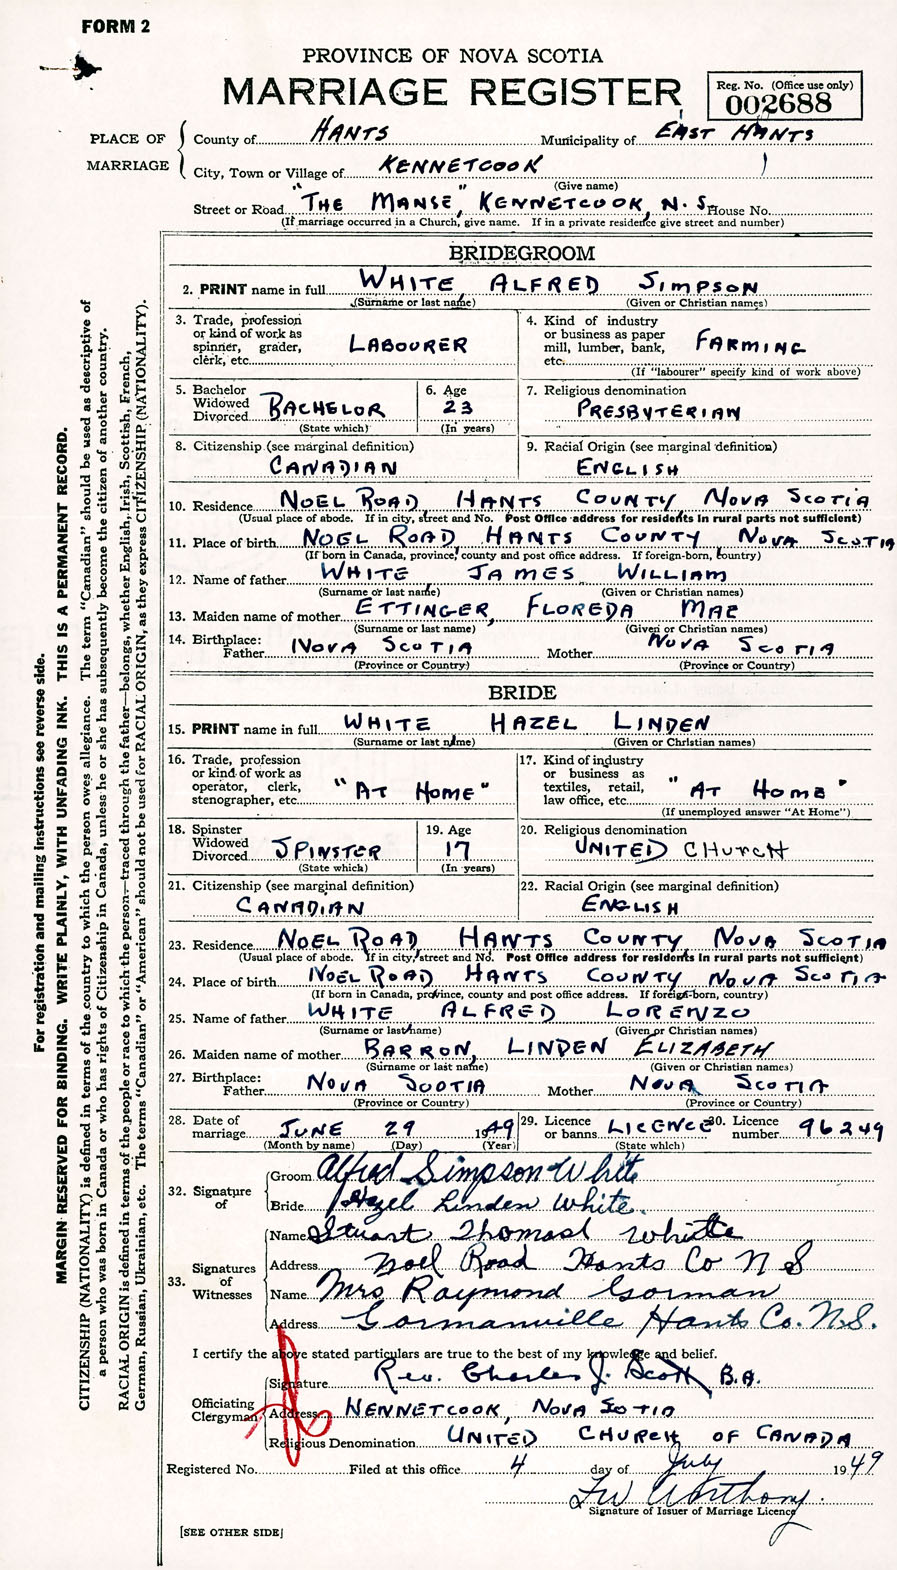 FORM 2
PROVINCE OF NOVA SCOTIA
MARRIAGE REGISTER
Reg. No. (Office use only)
002688
PLACE OF MARRIAGE
County of HANTS Municipality of EAST HANTS
City, Town or Village of KENNETCOOK
(Give name)
Street or Road "THE MANSE", KENNETCOOK, N.S. House No.
(If marriage occurred in a Church, give name. If in a private residence give street and number)
BRIDEGROOM
2. PRINT name in full WHITE, ALFRED SIMPSON
(Surname or last name) (Given or Christian names)
3. Trade, profession or kind of work as spinner, grader, clerk, etc. LABOURER
4. Kind of industry or business as paper mill, lumber, bank, etc. FARMING
(If "labourer" specify kind of work above)
5. Bachelor Widowed Divorced BACHELOR
(State which)
6. Age 23
(In years)
7. Religious denomination
PRESBYTERIAN
8. Citizenship (see marginal definition)
CANADIAN
9. Racial Origin (see marginal definition)
ENGLISH
10. Residence NOEL ROAD, HANTS COUNTY, NOVA SCOTIA
(Usual place of abode. If in city, street and No. Post Office address for residents in rural parts not sufficient)
11. Place of birth NOEL ROAD, HANTS COUNTY, NOVA SCOTIA
(If born in Canada, province, county and post office address. If foreign-born, country)
12. Name of father WHITE JAMES WILLIAM
(Surname or last name) (Given or Christian names)
13. Maiden name of mother ETTINGER, FLOREDA MAE
(Surname or last name) (Given or Christian names)
14. Birthplace: Father NOVA SCOTIA Mother NOVA SCOTIA
(Province or Country) (Province or Country)
BRIDE
15. PRINT name in full WHITE HAZEL LINDEN
(Surname or last name) (Given or Christian names)
16. Trade, profession or kind of work as operator, clerk, stenographer, etc. "AT HOME"
17. Kind of industry or business as textiles, retail, law office, etc. "AT HOME"
(If unemployed answer "At Home")
18. Spinster Widowed Divorced SPINSTER
(State which)
19. Age 17
(In years)
20. Religious denomination
UNITED CHURCH
21. Citizenship (see marginal definition)
CANADIAN
22. Racial Origin (see marginal definition)
ENGLISH
23. Residence NOEL ROAD, HANTS COUNTY, NOVA SCOTIA
(Usual place of abode. If in city, street and No. Post Office address for residents in rural parts not sufficient)
24. Place of birth NOEL ROAD, HANTS COUNTY NOVA SCOTIA
(If born in Canada, province, county and post office address. If foreign-born, country)
25. Name of father WHITE ALFRED LORENZO
(Surname or last name) (Given or Christian names)
26. Maiden name of mother BARRON, LINDEN ELIZABETH
(Surname or last name) (Given or Christian names)
27. Birthplace: Father NOVA SCOTIA Mother NOVA SCOTIA
(Province or Country) (Province or Country)
28. Date of marriage JUNE 29 1949
(Month by name) (Day) (Year)
29. Licence or banns LICENCE
(State which)
30. Licence number 96249
32. Signature of
Groom Alfred Simpson White
Bride Hazel Linden White.
33. Signatures of Witnesses
Name Stuart Thomas White
Address Noel Road Hants Co N S
Name Mrs Raymond Gorman
Address Gormanville Hants Co. N.S.
I certify the above stated particulars are true to the best of my knowledge and belief.
Officiating Clergyman
Signature Rev. Charles J. Scott, B.A.
Address KENNETCOOK, NOVA SCOTIA
Religious Denomination UNITED CHURCH OF CANADA
Registered No. Filed at this office 4 day of July 1949
Signature of Issuer of Marriage Licence
[SEE OTHER SIDE]
For registration and mailing instructions see reverse side.
MARGIN RESERVED FOR BINDING. WRITE PLAINLY, WITH UNFADING INK. THIS IS A PERMANENT RECORD.
CITIZENSHIP (NATIONALITY) is defined in terms of the country to which the person owes allegiance. The term "Canadian" should be used as descriptive of
a person who was born in Canada or who has rights of Citizenship in Canada, unless he or she has subsequently become the citizen of another country.
RACIAL ORIGIN is defined in terms of the people or race to which the person—traced through the father—belongs, whether English, Irish, Scottish, French,
German, Russian, Ukrainian, etc. The terms "Canadian" or "American" should not be used for RACIAL ORIGIN, as they express CITIZENSHIP (NATIONALITY).